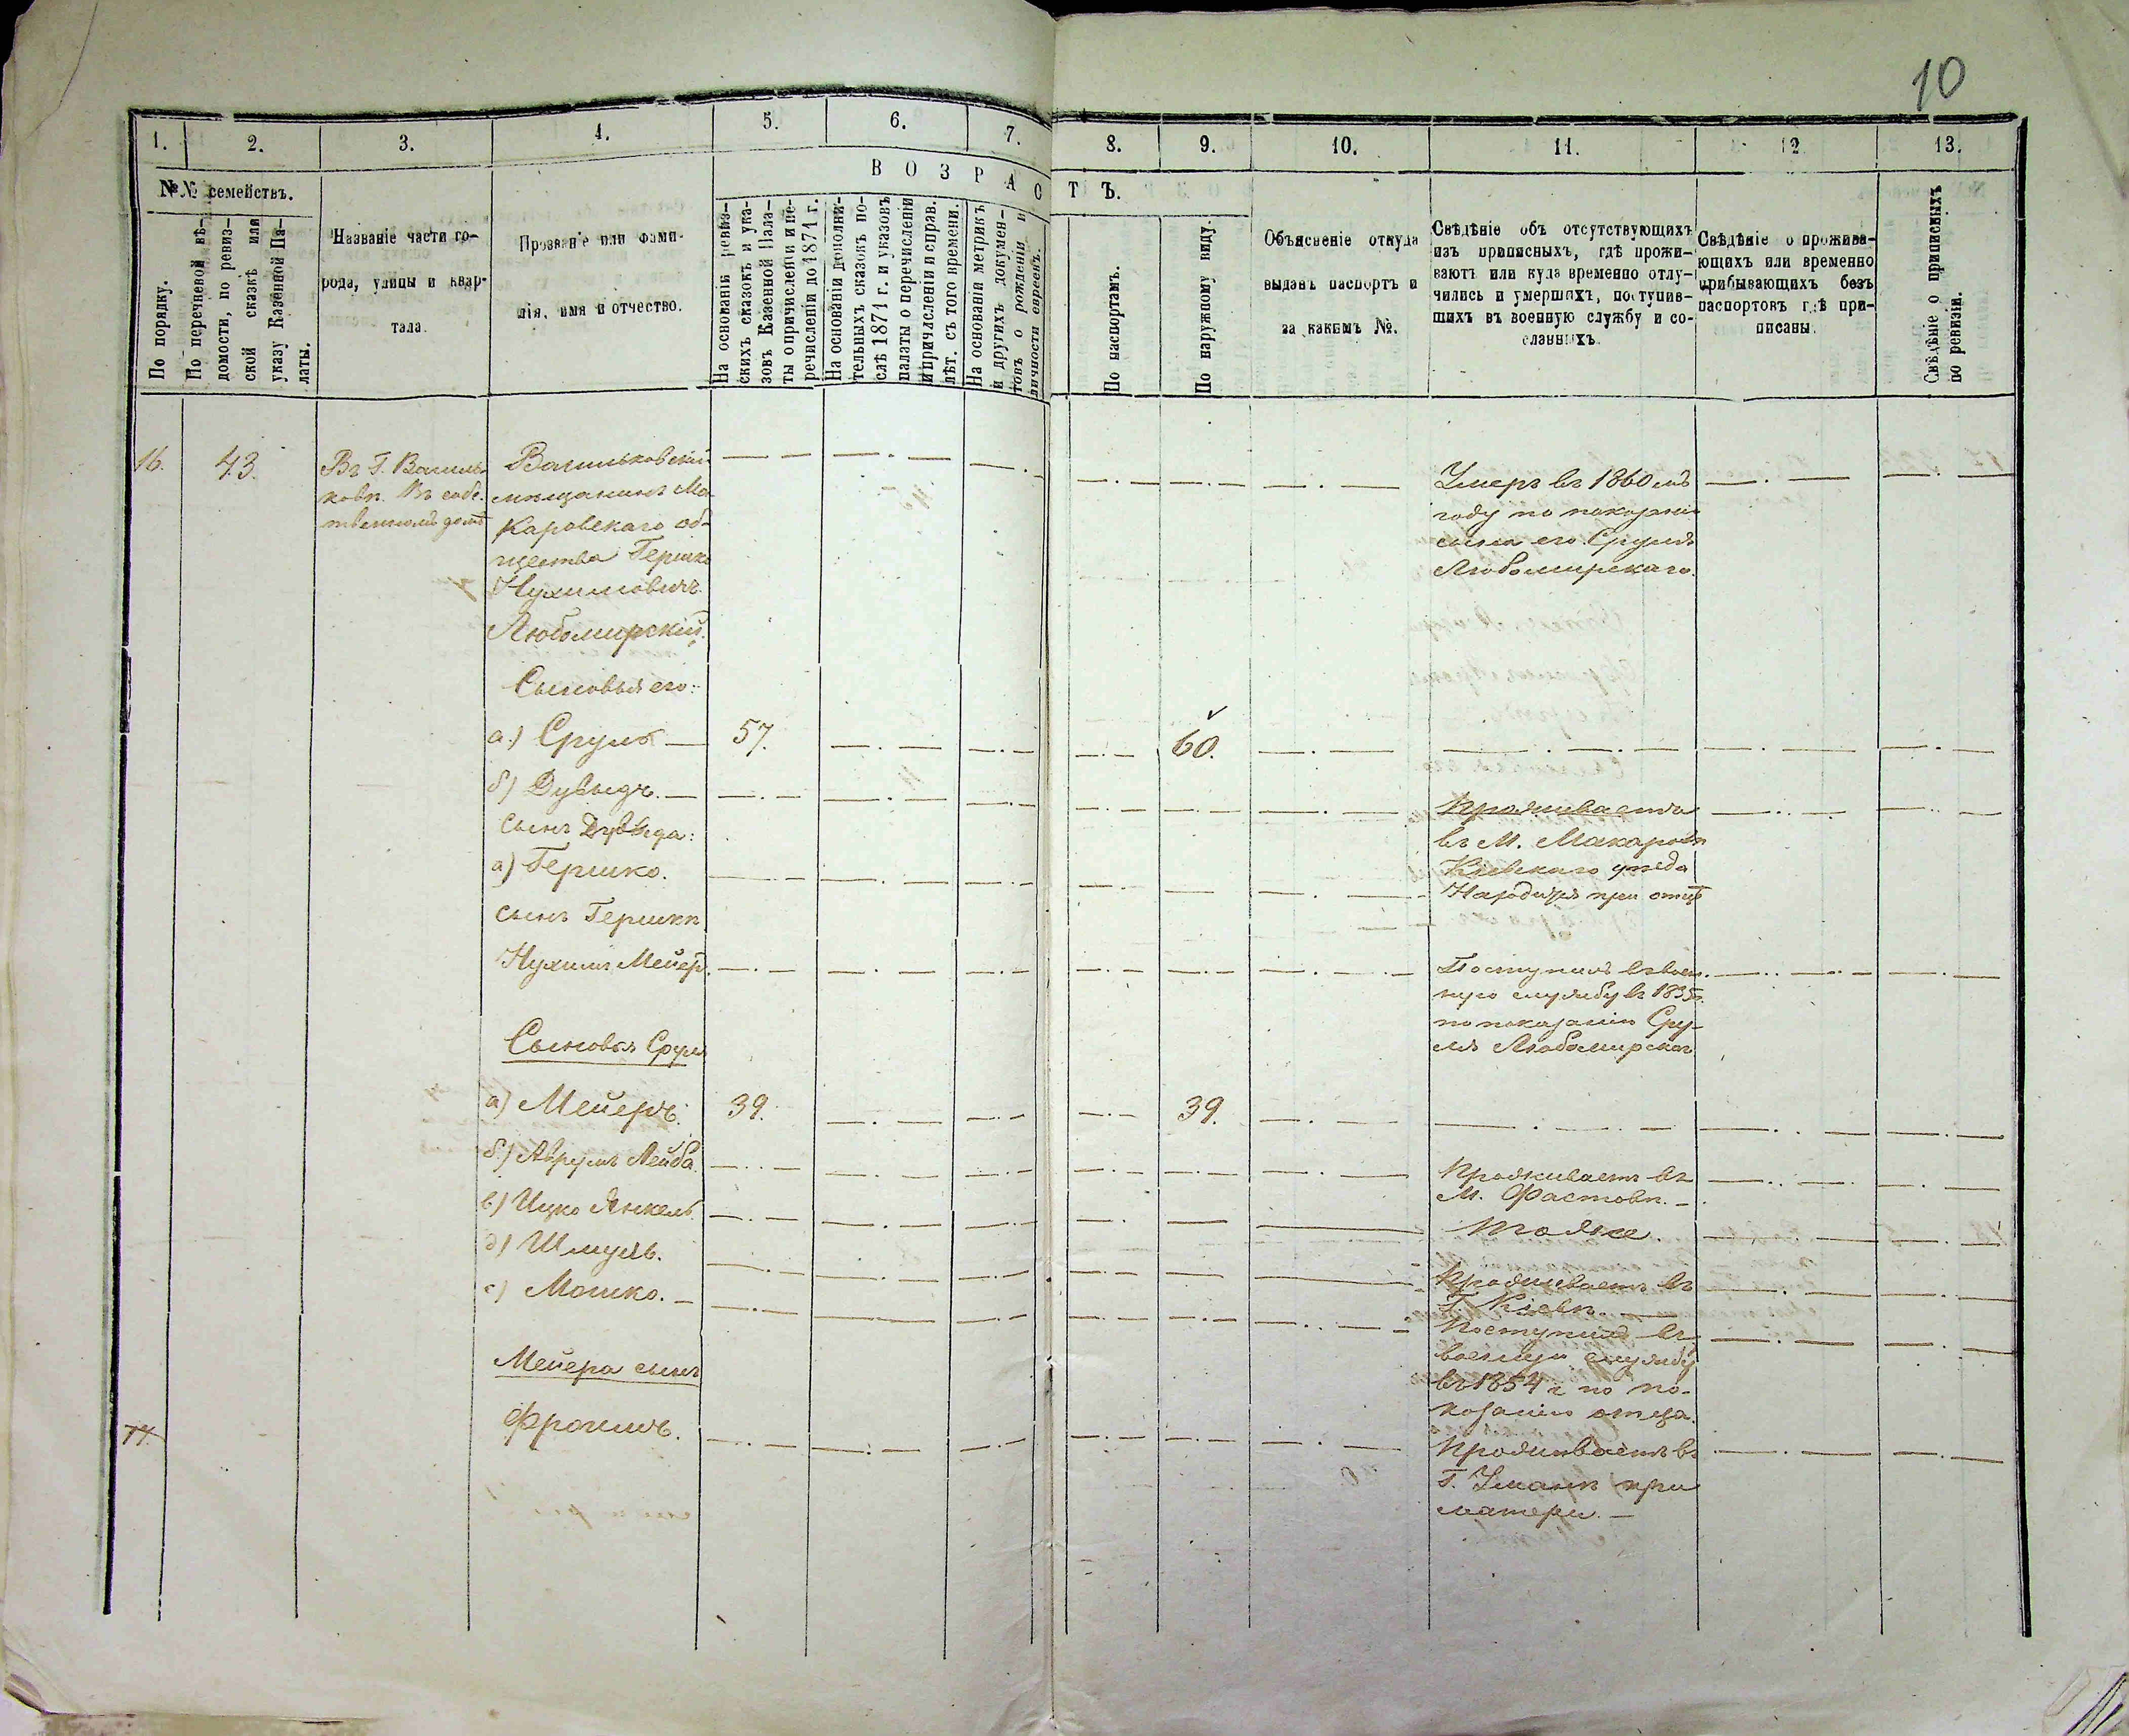 10
1.
2.
3.
4.
5.
6.
7.
8.
9.
10.
11.
12
13.
№№ семействъ.
По порядку.
По перечневой вѣ-
домости, по ревиз-
ской сказкѣ или
указу Казенной Па-
латы.
Названіе части го-
рода, улицы и квар-
тала.
Прозваніе или фами-
лія, имя и отчество.
ВОЗРАСТЪ.
На основаніи ревиз-
скихъ сказокъ и ука-
зовъ Казенной Пала-
ты о причисленіи и пе-
речисленіи до 1871 г.
На основаніи дополни-
тельныхъ сказокъ по-
слѣ 1871 г. и указовъ
палаты о перечисленіи
и причисленіи и справ.
лѣт. съ того времени.
На основаніи метрикъ
и другихъ докумен-
товъ о рожденіи и
личности евреевъ.
По паспортамъ.
По наружному виду.
Объясненіе откуда
выданъ паспортъ и
за какимъ №.
Свѣдѣніе объ отсутствующихъ
изъ приписныхъ, гдѣ прожи-
ваютъ или куда временно отлу-
чились и умершихъ, поступив-
шихъ въ военную службу и со-
сланныхъ
Свѣдѣніе о прожива-
ющихъ или временно
прибывающихъ безъ
паспортовъ гдѣ при-
писаны.
Свѣдѣніе о приписныхъ
по ревизіи.
16.
43.
Въ Г. Василь-
ковѣ. Въ собс-
твенномъ домѣ
Васильковскій
мѣщанинъ Ма-
каровскаго об-
щества Гершко
Нухимовичъ
Любомирскій.
Умеръ въ 1860мъ
году по показанію
сына его Сруля
Любомирскаго.
Сыновья его:
а.) Сруль —
57.
60.
б) Дувыдъ. —
Проживаетъ
сынъ Дувыда:
въ М. Макаровѣ
а) Гершко.
Кіевскаго уѣзда
Находится при отцѣ
сынъ Гершки
Нухимъ Мейеръ.
Поступилъ въ воен-
ную службу въ 1855г.
по показанію Сру-
ля Любомирскаго
Сыновья Сруля
а) Мейеръ.
39.
39.
б.) Аврумъ Лейба.
Проживаетъ въ
М. Фастовѣ. —
в) Ицко Янкель.
Тоже.
д) Шмуль.
Проживаетъ въ
Г. Кіевѣ. —
е) Мошко. —
Поступилъ въ
военную службу
въ 1854 г. по по-
казанію отца.
Мейера сынъ
Фроимъ.
Проживаетъ въ
Г. Умани при
матери. —